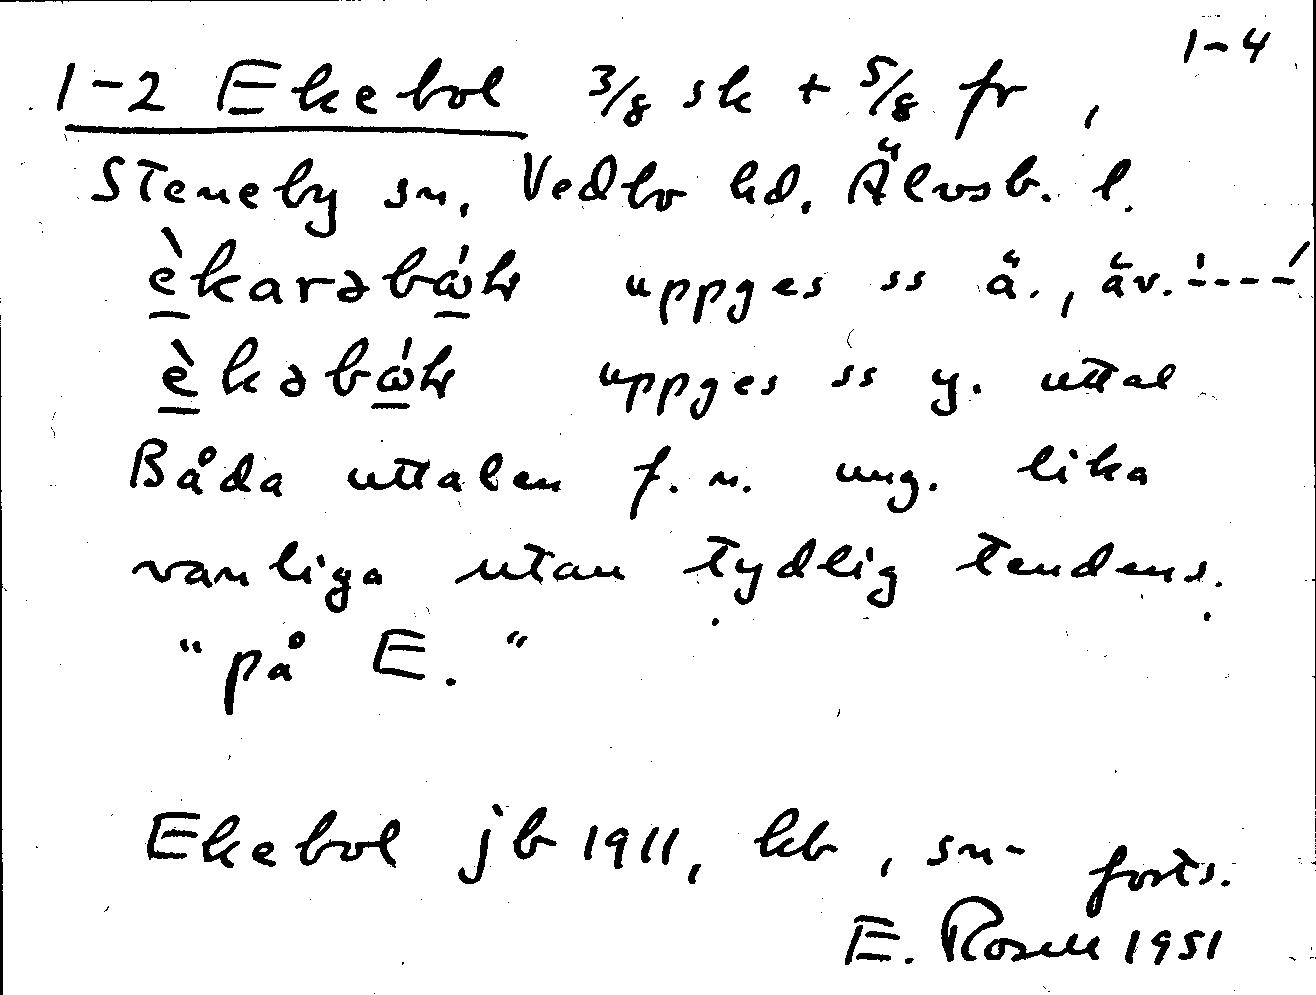 1-4
1-2 Ekebol 3/8 sk + 5/8 fr,
Steneby sn, Vedbo hd, Älvsb. l.
uppges ss ä., äv. '---'
uppges ss y. uttal
Båda uttalen f. n. ung. lika
vanliga utan tydlig tendens.
"på E."
Ekebol jb 1911, kb, sn- forts.
E. Rosell 1951